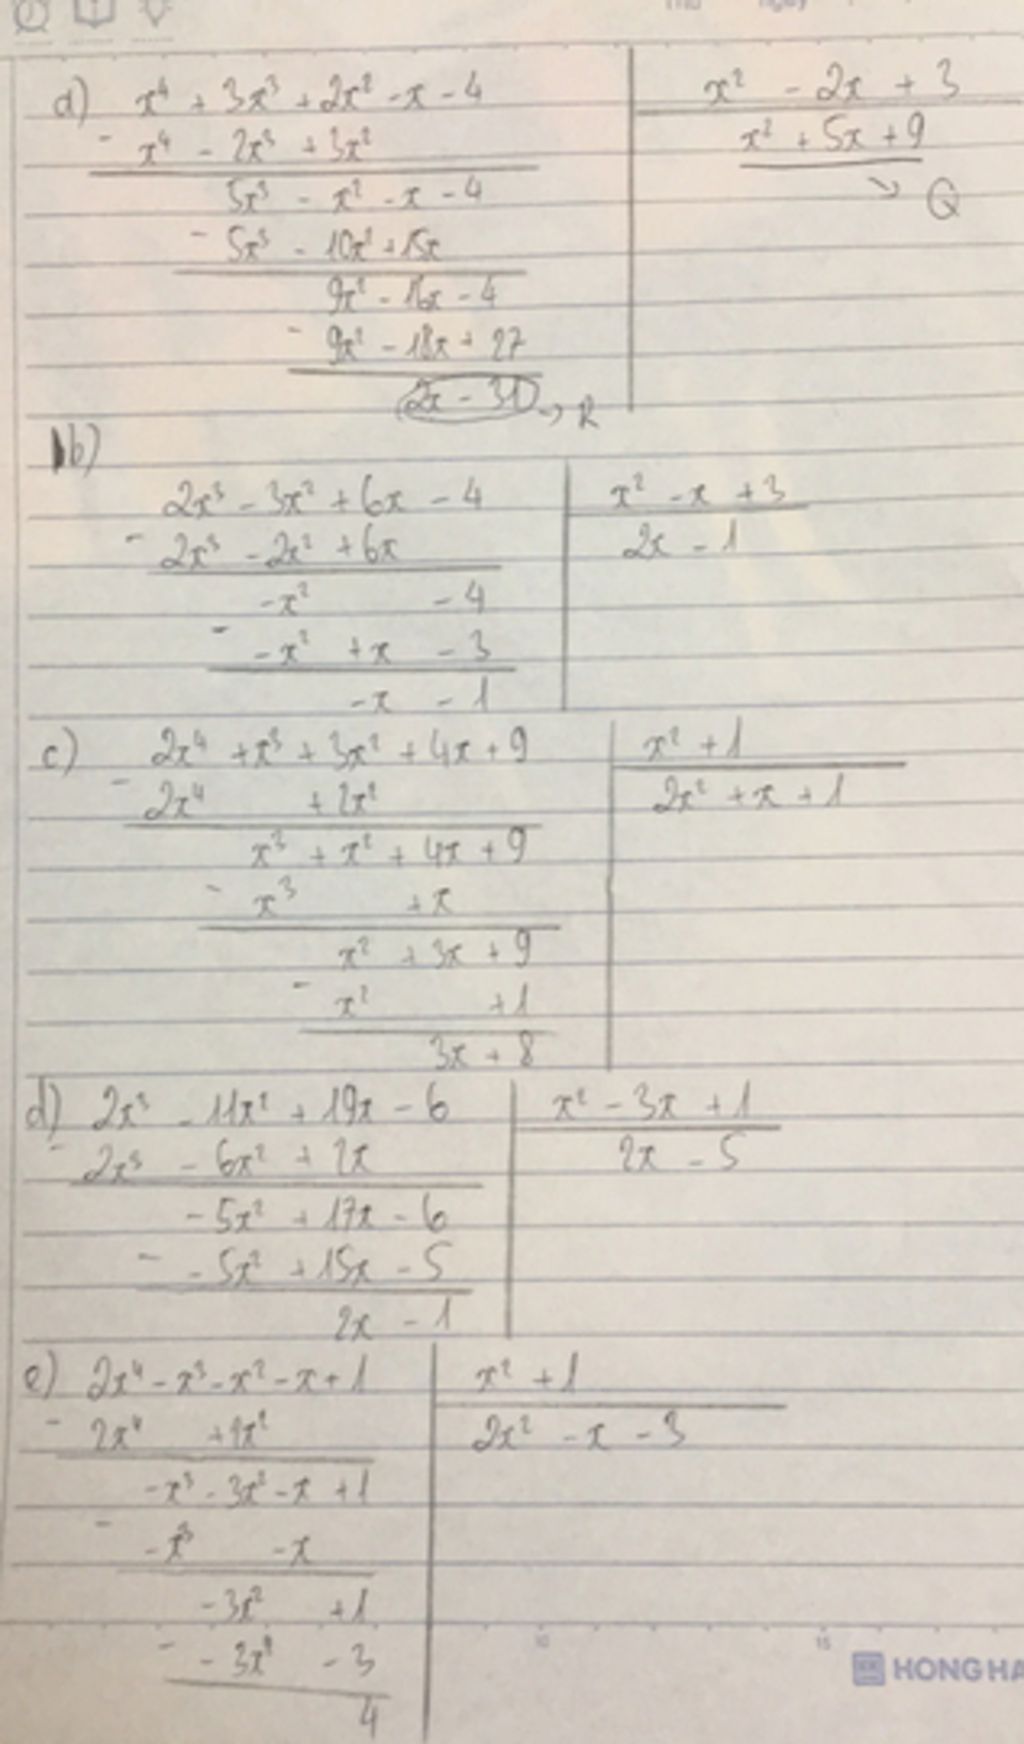 a) x⁴ + 3x³ + 2x² - x - 4 | x² - 2x + 3
- x⁴ - 2x³ + 3x² | x² + 5x + 9
5x³ - x² - x - 4 ↘ Q
- 5x³ - 10x² + 15x
9x² - 16x - 4
- 9x² - 18x + 27
2x - 31 → R
b)
2x³ - 3x² + 6x - 4 | x² - x + 3
- 2x³ - 2x² + 6x | 2x - 1
-x² - 4
- -x² + x - 3
-x - 1
c) 2x⁴ + x³ + 3x² + 4x + 9 | x² + 1
- 2x⁴ + 2x² | 2x² + x + 1
x³ + x² + 4x + 9
- x³ + x
x² + 3x + 9
- x² + 1
3x + 8
d) 2x³ - 11x² + 19x - 6 | x² - 3x + 1
- 2x³ - 6x² + 2x | 2x - 5
-5x² + 17x - 6
- -5x² + 15x - 5
2x - 1
e) 2x⁴ - x³ - x² - x + 1 | x² + 1
- 2x⁴ + 2x² | 2x² - x - 3
-x³ - 3x² - x + 1
- -x³ - x
-3x² + 1
- -3x² - 3
4
10 15
HONG HA